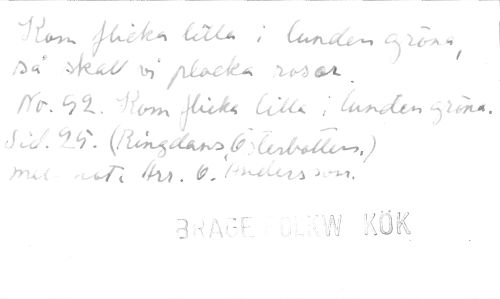 Kom flicka lilla i lunden gröna,
så skall vi plocka rosor.
No. 92. Kom flicka lilla i lunden gröna.
Sid. 25. (Ringdans, Österbotten.)
mel. not. Arr. O. Andersson.
BRAGE FOLKW KÖK